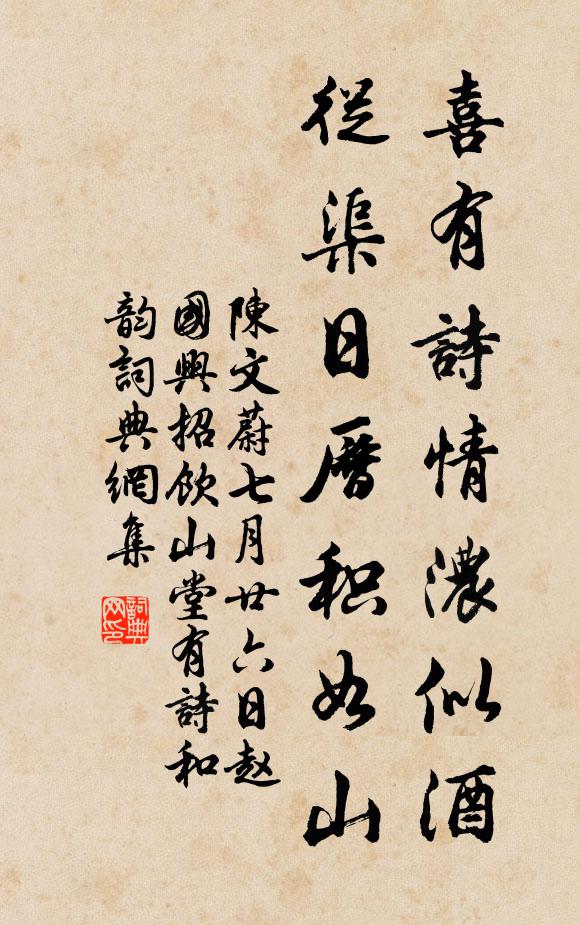 喜有詩情濃似酒
從渠日曆积如山
陳文蔚七月廿六日赵
國興招飲山堂有詩和
韵詞典網集
詞典网印